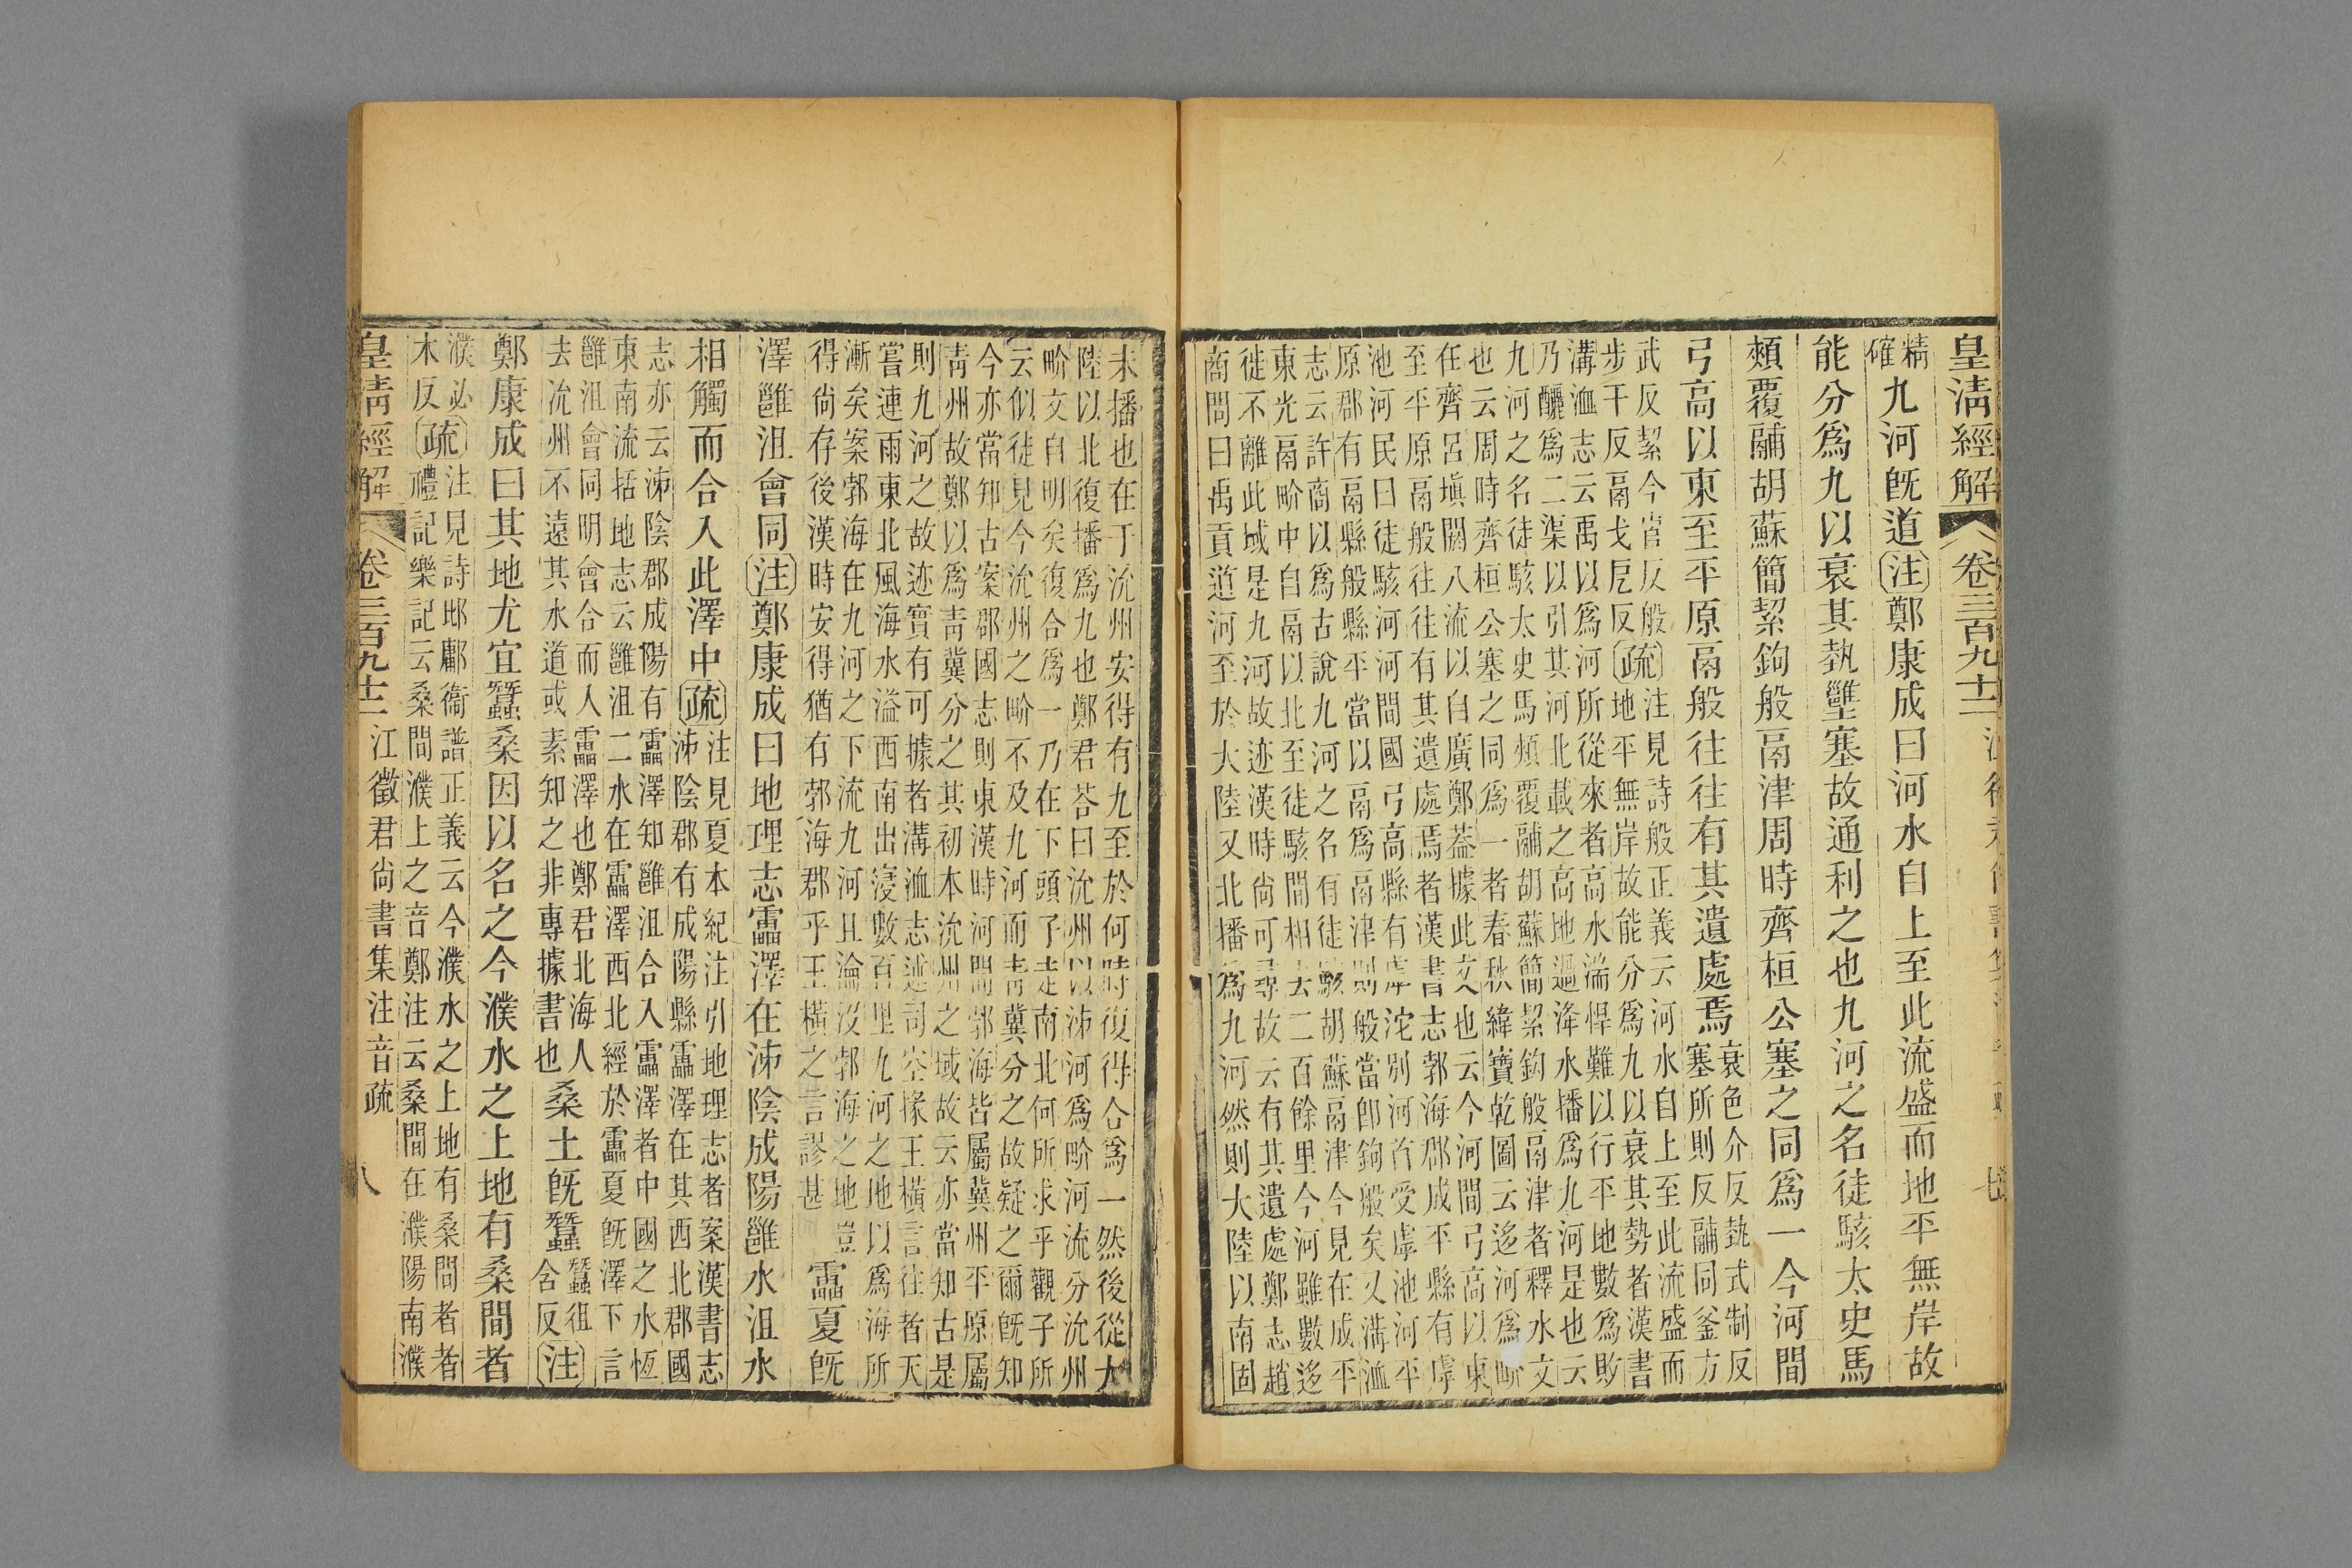 皇淸經解 卷三百九十二
精確九河旣道注鄭康成曰河水自上至此流盛而地平無岸故
能分爲九以衰其埶壅塞故通利之也九河之名徒駭太史馬
頰覆鬴胡蘇簡絜鉤般鬲津周時齊桓公塞之同爲一今河間
弓高以東至平原鬲般往往有其遺處焉衰色介反埶式制反
塞所則反鬴同釜方
武反絜今官反般
步干反鬲戈戹反疏注見詩般正義云河水自上至此流盛而
地平無岸故能分爲九以衰其勢者漢書
溝洫志云禹以爲河所從來者高水湍悍難以行平地數爲敗
乃釃爲二渠以引其河北載之高地過洚水播爲九河是也云
九河之名徒駭太史馬頰覆鬴胡蘇簡絜鈎般鬲津者釋水文
也云周時齊桓公塞之同爲一者春秋緯寶乾圖云迻河爲畍
在齊呂塡閼八流以自廣鄭葢據此文也云今河間弓高以東
至平原鬲般往往有其遺處焉者漢書志郭海郡成平縣有虖
池河民曰徒駭河河間國弓高縣有虖沱別河首受虖池河平
原郡有鬲縣般縣平當以鬲爲鬲津則般當卽鉤般矣又溝洫
志云許商以爲古說九河之名有徒駭胡蘇鬲津今見在成平
東光鬲畍中自鬲以北至徒駭間相去二百餘里今河雖數迻
徙不離此域是九河故迹漢時尙可尋故云有其遺處鄭志趙
商問曰禹貢道河至於大陸又北播爲九河然則大陸以南固
未播也在于沇州安得有九至於何時復得合爲一然後從大
陸以北復播爲九也鄭君荅曰沇州以泲河爲畍河流分沇州
畍文自明矣復合爲一乃在下頭子走南北何所求乎觀子所
云似徒見今沇州之畍不及九河而靑冀分之故疑之爾旣知
今亦當知古案郡國志則東漢時河間郭海皆屬冀州平原屬
靑州故鄭以爲靑冀分之其初本沇州之域故云亦當知古是
則九河之故迹實有可據者溝洫志述司空掾王橫言往者天
嘗連雨東北風海水溢西南出寖數百里九河之地以爲海所
漸矣案郭海在九河之下流九河且淪沒郭海之地豈
得尙存後漢時安得猶有郭海郡乎王橫之言謬甚
靁夏旣
澤雝沮會同注鄭康成曰地理志靁澤在泲陰成陽雝水沮水
相觸而合入此澤中疏注見夏本紀注引地理志者案漢書志
泲陰郡有成陽縣靁澤在其西北郡國
志亦云泲陰郡成陽有靁澤知雝沮合入靁澤者中國之水恆
東南流括地志云雝沮二水在靁澤西北經於靁夏旣澤下言
雝沮會同明會合而入靁澤也鄭君北海人
去沇州不遠其水道或素知之非專據書也
桑土旣蠶蠶徂
含反注
鄭康成曰其地尤宜蠶桑因以名之今濮水之上地有桑間者
濮必
木反疏注見詩邶鄘衞譜正義云今濮水之上地有桑間者者
禮記樂記云桑間濮上之音鄭注云桑間在濮陽南濮
皇淸經解 卷三百九十二 江徵君尙書集注音疏 八